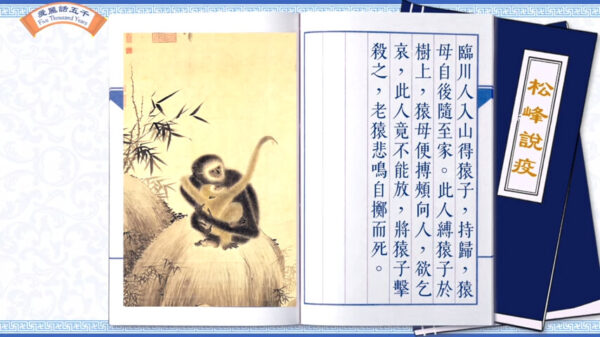 Five Thousand Years
臨川人入山得猿子，持歸，猿
母自後隨至家。此人縛猿子於
樹上，猿母便搏頰向人，欲乞
哀，此人竟不能放，將猿子擊
殺之，老猿悲鳴自擲而死。
松峰說疫